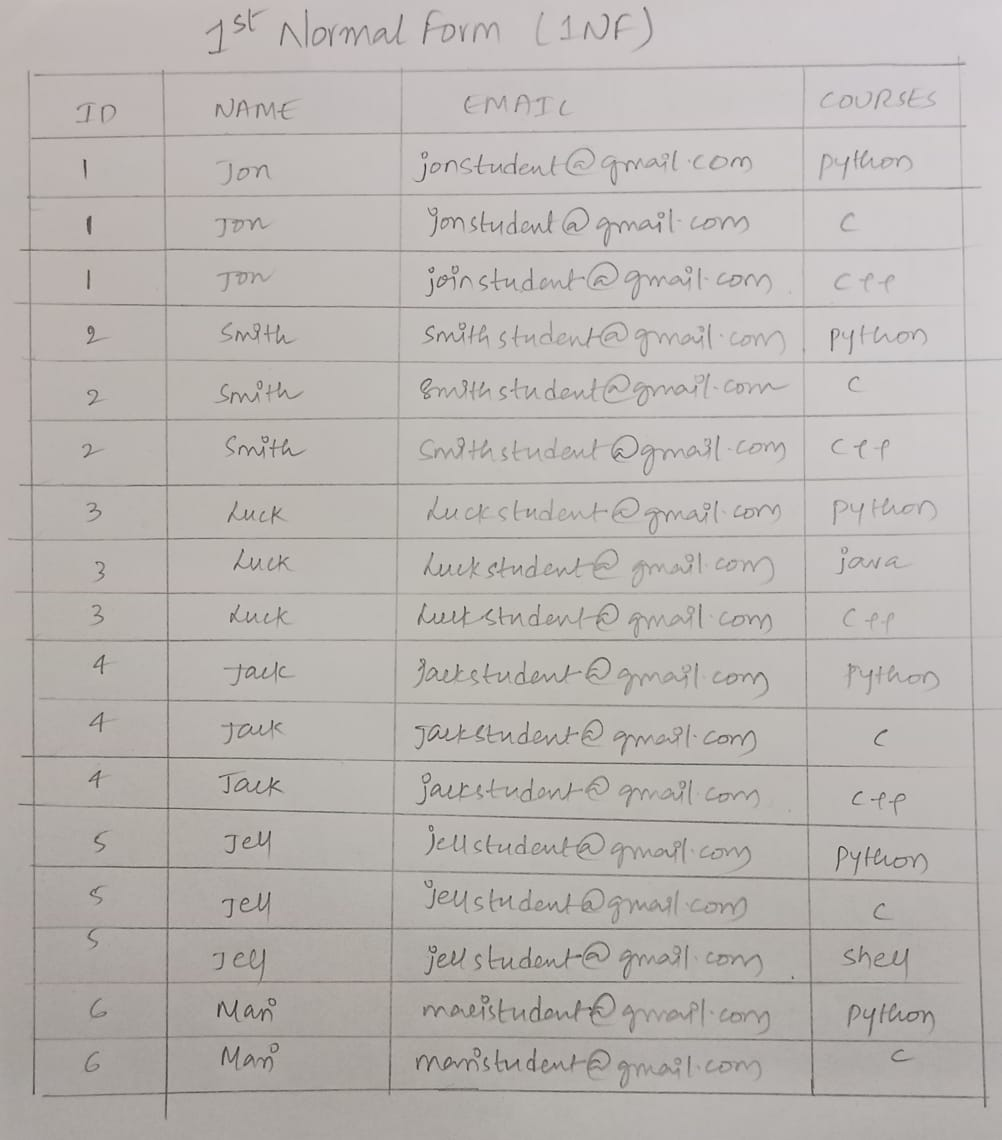 1st Normal Form (1NF)
ID NAME EMAIL COURSES
1 Jon jonstudent@gmail.com python
1 Jon jonstudent@gmail.com C
1 Jon joinstudent@gmail.com Cpp
2 Smith smithstudent@gmail.com python
2 Smith smithstudent@gmail.com C
2 Smith smithstudent@gmail.com Cpp
3 Luck Luckstudent@gmail.com python
3 Luck Luckstudent@gmail.com java
3 Luck Luckstudent@gmail.com Cpp
4 Jack jackstudent@gmail.com python
4 Jack Jackstudent@gmail.com C
4 Jack jackstudent@gmail.com Cpp
5 Jell jellstudent@gmail.com python
5 Jell jellstudent@gmail.com C
5 Jell jellstudent@gmail.com shell
6 Mari python
6 Mari maristudent@gmail.com C